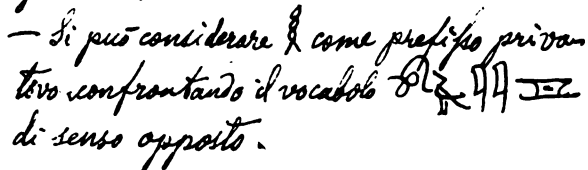 — Si può considerare 𓎛 come prefisso priva-
tivo confrontando il vocabolo
di senso opposto.